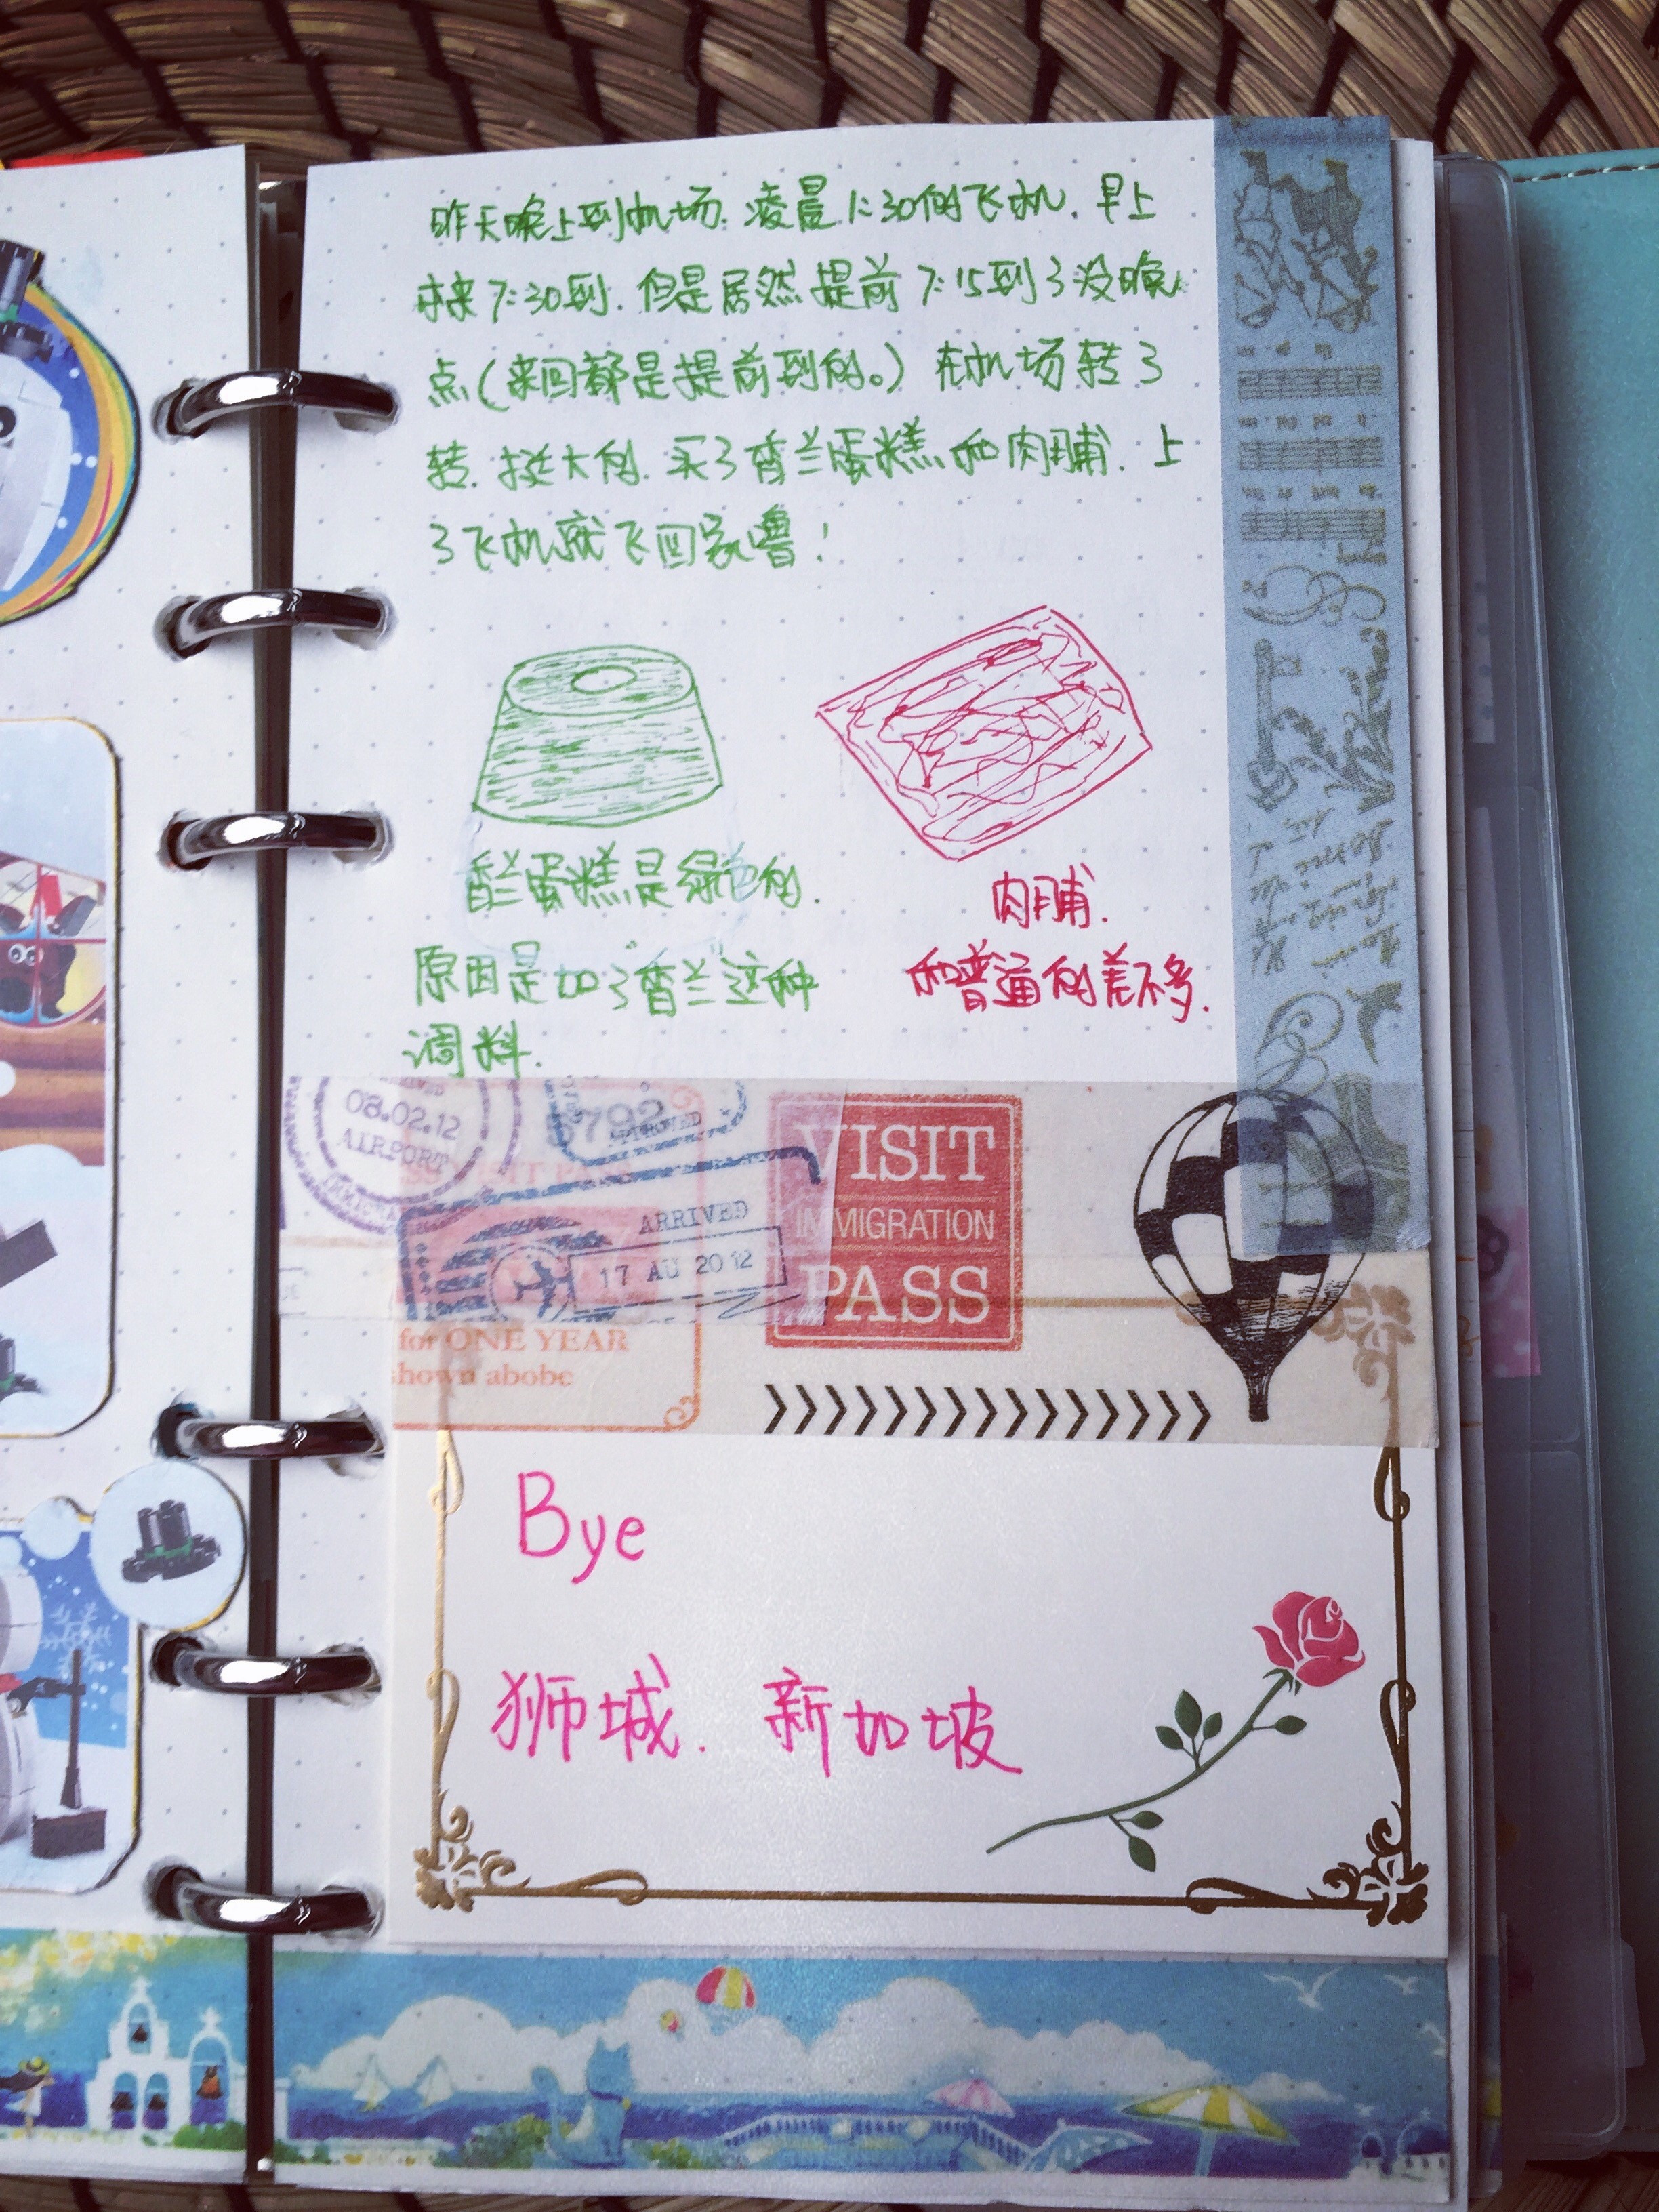 昨天晚上到机场.凌晨1:30的飞机.早上
本来7:30到.但是居然提前7:15到了没晚
点(来回都是提前到的。)在机场转了
转.挺大的.买了香兰蛋糕和肉脯.上
了飞机就飞回家噜!
香兰蛋糕是绿色的.
原因是加了"香兰"这种
调料.
肉脯.
和普通的差不多.
08.02.12
AIRPORT
5792
APPROVED
ARRIVED
17 AU 2012
VISIT
IMMIGRATION
PASS
for ONE YEAR
shown abobe
Bye
狮城.新加坡